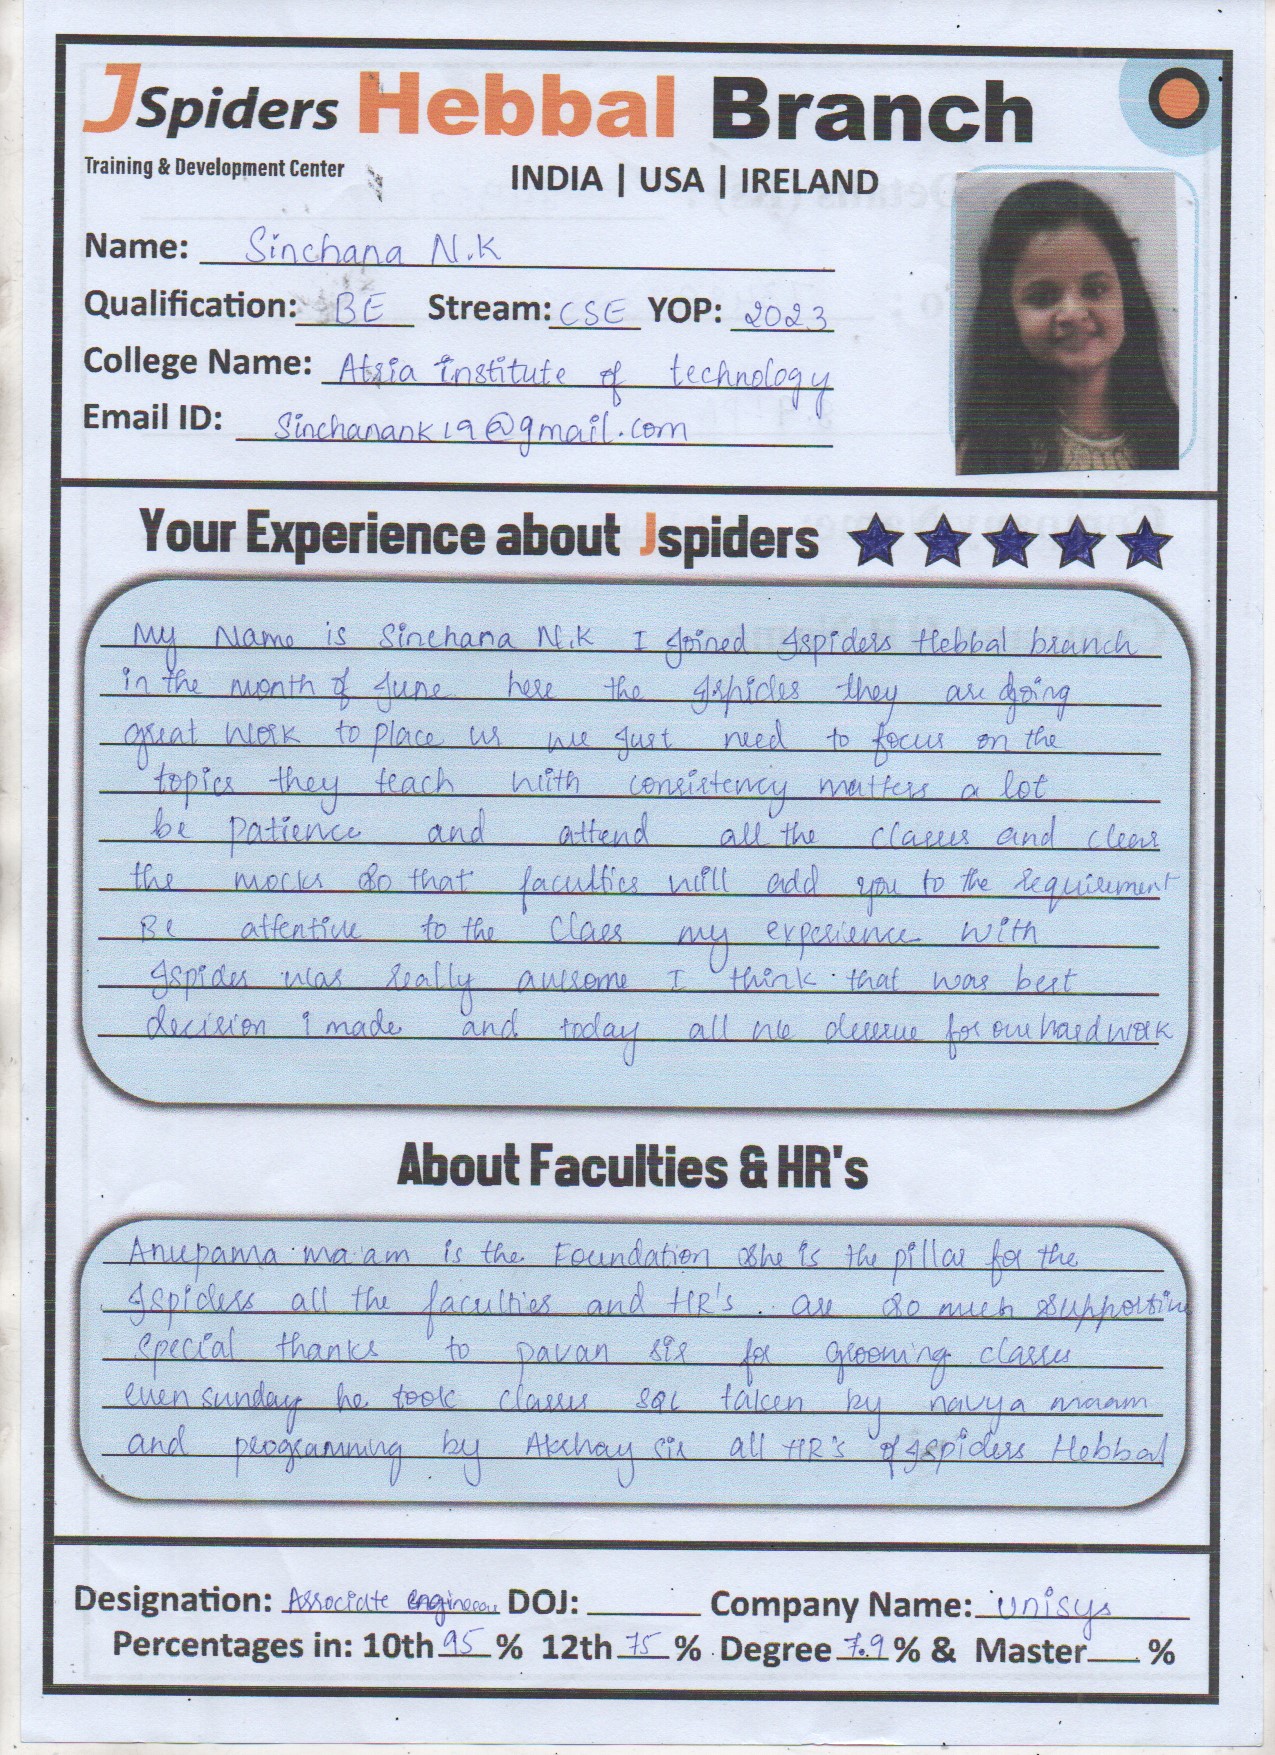 JSpiders Hebbal Branch
Training & Development Center
INDIA | USA | IRELAND
Name: Sinchana N.K
Qualification: BE Stream: CSE YOP: 2023
College Name: Atria institute of technology
Email ID: Sinchanank19@gmail.com
Your Experience about Jspiders
My Name is Sinchana N.K I joined Jspiders Hebbal branch
in the month of June here the Jspides they are doing
great work to place us we just need to focus on the
topics they teach with consistency matters a lot
be patience and attend all the classes and clear
the mocks so that faculties will add you to the requirement
Be attentive to the class my experience with
Jspider was really awesome I think that was best
decision i made and today all we deserve for our hard work
About Faculties & HR's
Anupama ma'am is the Foundation she is the pillar for the
Jspiders all the faculties and HR's are so much supporting
Special thanks to pavan sir for grooming classes
even sunday he took classes sql taken by navya maam
and programming by Akshay sir all HR's of Jspiders Hebbal
Designation: Associate engineer DOJ: Company Name: Unisys
Percentages in: 10th 95 % 12th 75 % Degree 7.9 % & Master %